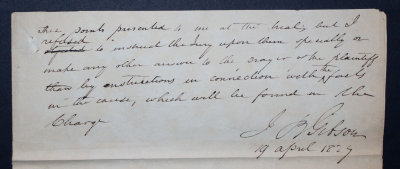 points presented to me at the trial; but I
refused
to instruct the Jury upon them specially or
make any other answer to the prayer of the plaintiff
than by instructions in connection with the facts
in the cause, which will be found in the
Charge
J B Gibson
19 april 1829